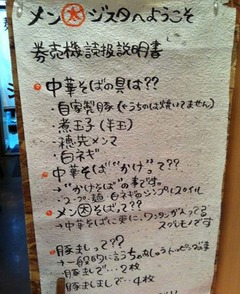 メン大ジスタへようこそ
券売機読扱説明書
・中華そばの具は??
・自家製豚(※うちのは焼いてません)
・煮玉子(半玉)
・穂先メンマ
・白ネギ
・中華そば"かけ"って??
→"かけそば"の事です。
・スープ 麺 白ネギのシンプルスタイル
・メン大そばって??
→中華そばに更に、ワンタンが入ってる
スグレモノです
・豚ましって??
豚まして…2枚
豚ましまして…4枚